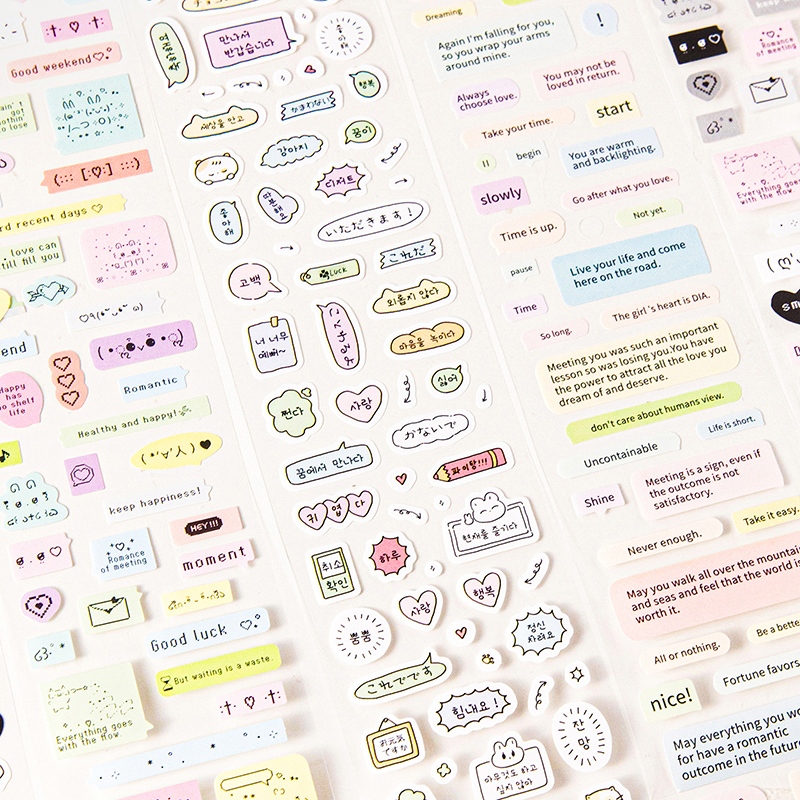 Good weekend
ain't
got
nothing
to lose
(::: [:♡] :::)
rd recent days
love can
till fill you
end
happy
has
no shelf
life
Romantic
Healthy and happy!
(*'∀'人)♥
keep happiness!
HEY!!!
Romance
of meeting
moment
Good luck
But waiting is a waste.
Everything goes
with the flow.
만나서
반갑습니다
세상을 안고
かまわない
행복
꿈이
강아지
디저트
좋아해
따분해요
いただきます!
これだ
고백
LUCK
외롭지 않다
너 너무
예뻐~
마음을 녹이다
싫어
쩐다
사랑
かないで
꿈에서 만나다
파이팅!!!
귀엽다
현재를 즐기다
취소
확인
하루
사랑
행복
뿅뿅
정신
차려요
これでです
힘내요!
お元気
ですか
잔망
아무것도 하고
싶지 않아
Dreaming
Again I'm falling for you,
so you wrap your arms
around mine.
!
Always
choose love.
You may not be
loved in return.
start
Take your time.
begin
You are warm
and backlighting.
slowly
Go after what you love.
Not yet.
Time is up.
pause
Live your life and come
here on the road.
Time
The girl's heart is DIA.
So long.
Meeting you was such an important
lesson so was losing you.You have
the power to attract all the love you
dream of and deserve.
don't care about humans view.
Life is short.
Uncontainable
Meeting is a sign, even if
the outcome is not
satisfactory.
Shine
Take it easy.
Never enough.
May you walk all over the mountains
and seas and feel that the world is
worth it.
Be a better
All or nothing.
Fortune favors
nice!
May everything you wo
for have a romantic
outcome in the future
keep h
Romance
of meeting
Everything goes
with the flow.
sm